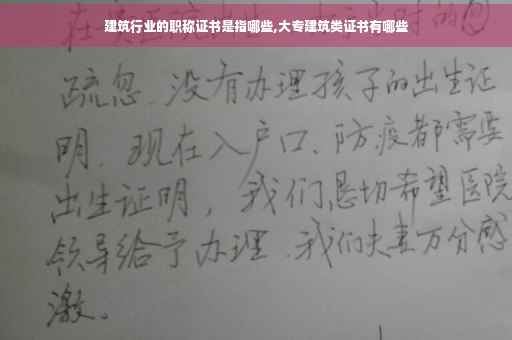 建筑行业的职称证书是指哪些,大专建筑类证书有哪些
疏忽、没有办理孩子的出生证
明、现在入户口、防疫都需要
出生证明，我们恳切希望医院
领导给予办理、我们夫妻万分感
激。